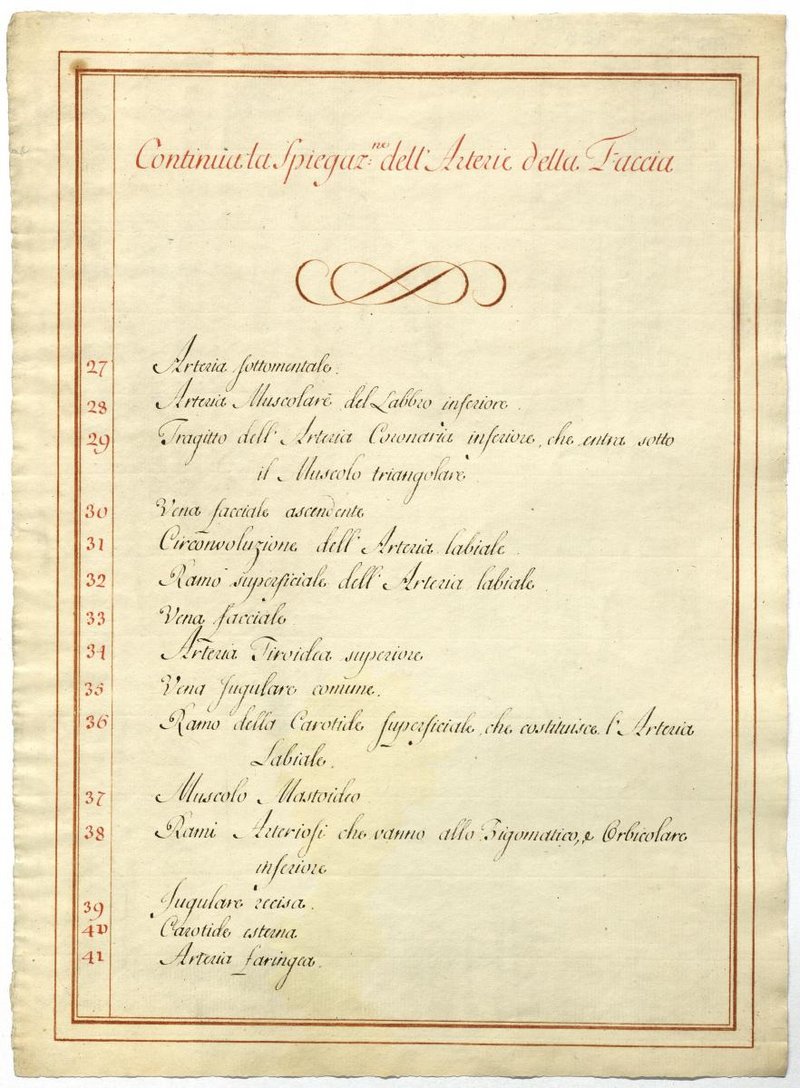 Continua la Spiegaz:ne dell'Arterie della Faccia
27 Arteria sottomentale.
28 Arteria Muscolare del Labbro inferiore.
29 Tragitto dell'Arteria Coronaria inferiore, che entra sotto
il Muscolo triangolare
30 Vena facciale ascendente
31 Circonvoluzione dell'Arteria labiale
32 Ramo superficiale dell'Arteria labiale
33 Vena facciale
34 Arteria Tiroidea superiore
35 Vena Jugulare comune.
36 Ramo della Carotide superficiale, che costituisce l'Arteria
Labiale.
37 Muscolo Mastoideo
38 Rami Arteriosi che vanno allo Zigomatico, e Orbicolare
inferiore
39 Jugulare recisa.
40 Carotide esterna
41 Arteria faringea.